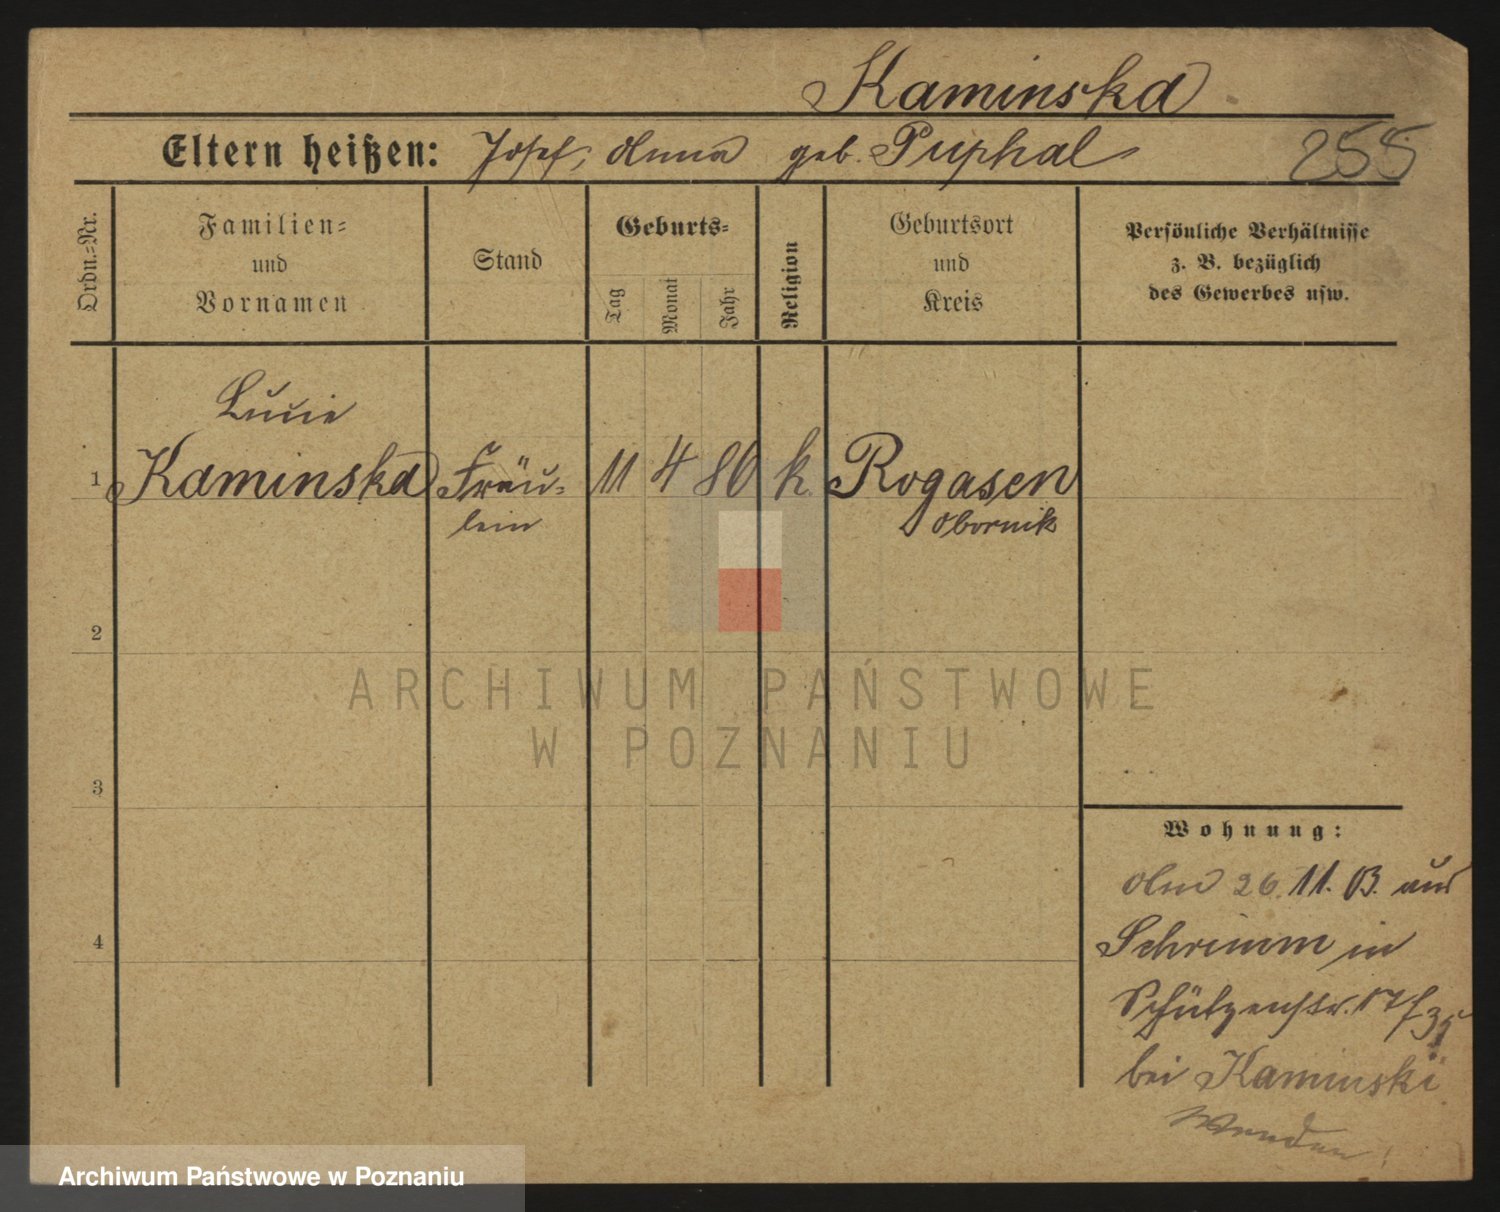 Kaminska
Eltern heißen: Josef, Anna geb. Puphal
255
Ordn.-Nr.
Familien-
und
Vornamen
Stand
Geburts-
Tag
Monat
Jahr
Religion
Geburtsort
und
Kreis
Persönliche Verhältnisse
z. B. bezüglich
des Gewerbes usw.
Lucie
1 Kaminska Fräu- 11 4 86 k. Rogasen
lein Obornik
2
ARCHIWUM PAŃSTWOWE
W POZNANIU
3
Wohnung:
26. 11. 03. aus
4
Schrimm in
Schützenstr.
bei Kaminski
Wenden!
Archiwum Państwowe w Poznaniu